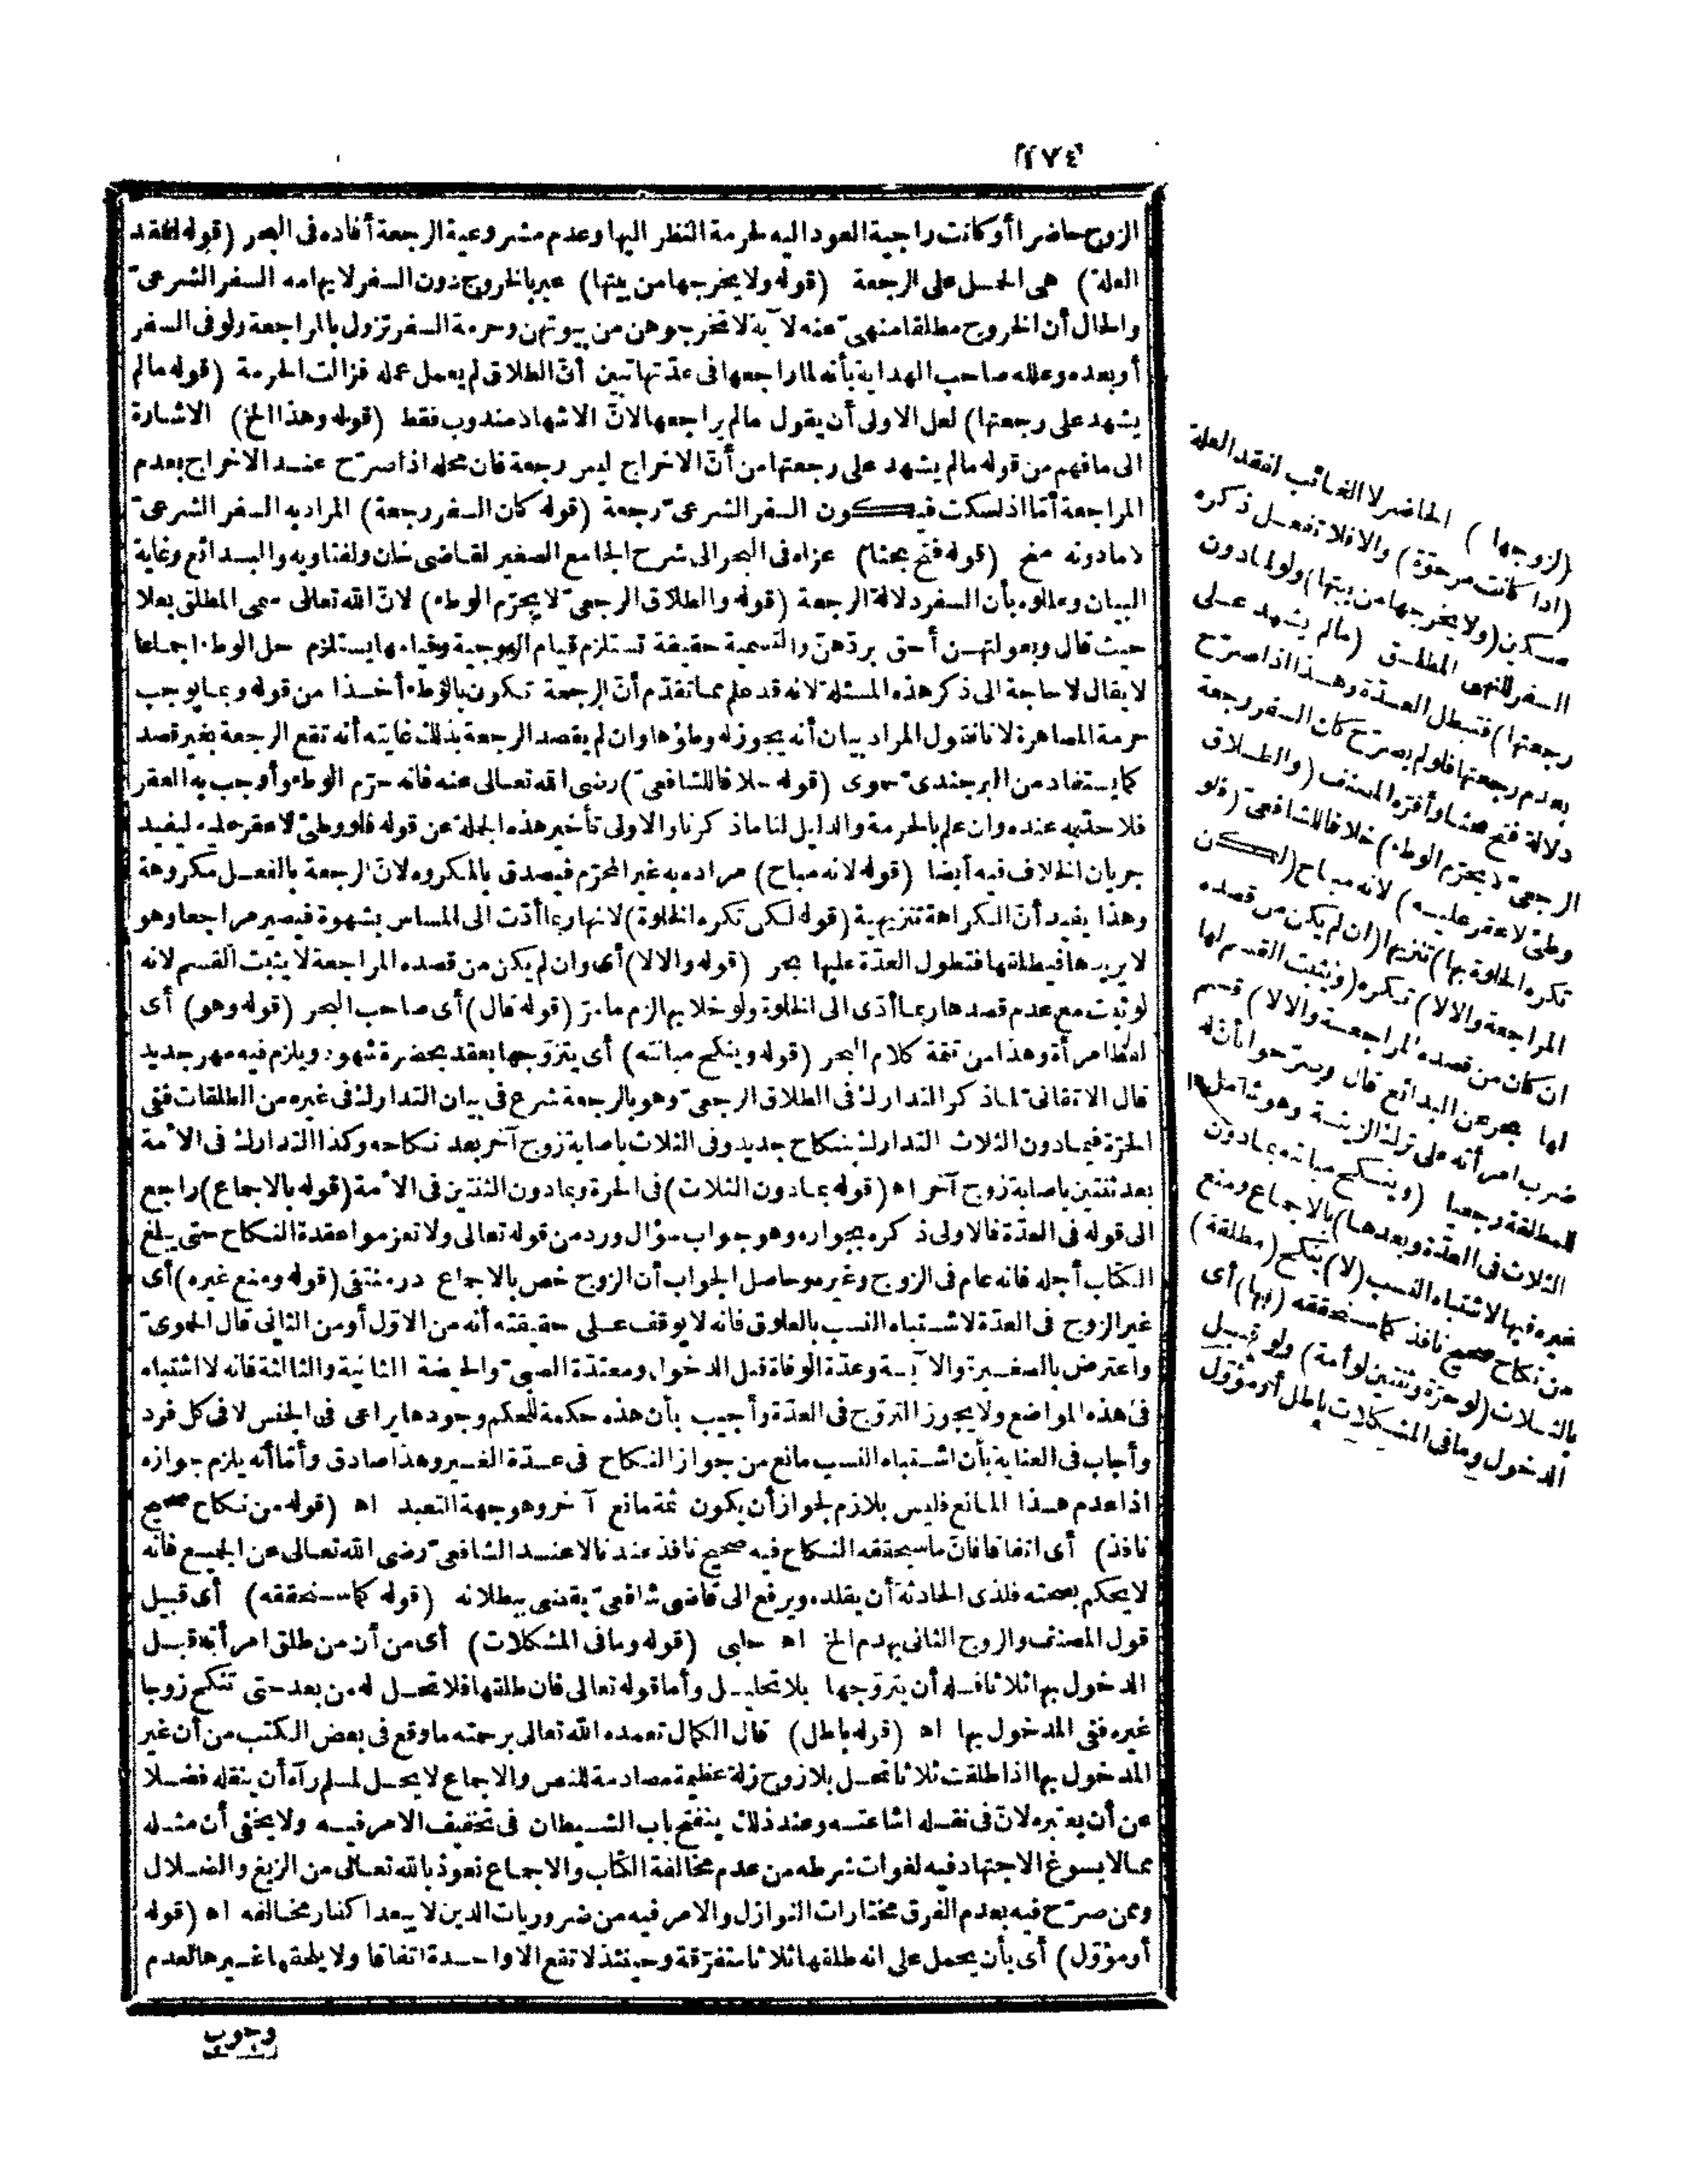 ٢٧٤
الزوج حاضرا أو كانت راجية العود اليه لحرمة النظر اليها وعدم مشروعية الرجعة أفاده فى البحر (قوله لفقد
العلة) هى الحمل على الرجعة (قوله ولا يخرجها من بيتها) عبر بالخروج دون السفر لايهامه السفر الشرعىّ
والحال أن الخروج مطلقا منهىّ عنه لآية لا تخرجوهن من بيوتهن وحرمة السفر تزول بالمراجعة ولو فى السفر
أو بعده وعلله صاحب الهداية بأنه لما راجعها فى عدّتها تبين أنّ الطلاق لم يعمل عمله فزالت الحرمة (قوله ما لم
يشهد على رجعتها) لعل الاولى أن يقول ما لم يراجعها لانّ الاشهاد مندوب فقط (قوله وهذا الخ) الاشارة
الى ما فهم من قوله ما لم يشهد على رجعتها من أنّ الاخراج ليس رجعة فان محله اذا صرّح عند الاخراج بعدم
المراجعة أمّا اذا سكت فيكون السفر الشرعىّ رجعة (قوله كان السفر رجعة) المراد به السفر الشرعىّ
لا ما دونه منح (قوله فتح بحثا) عزاه فى البحر الى شرح الجامع الصغير لقاضى خان ولفتاويه والبدائع وغاية
البيان وعللوه بأن السفر دلالة الرجعة (قوله والطلاق الرجعىّ لا يحرّم الوطء) لانّ الله تعالى سمى المطلق بعلا
حيث قال وبعولتهن أحق بردّهنّ والتسمية حقيقة تستلزم قيام الزوجية وقيامها يستلزم حل الوطء اجماعا
لا يقال لا حاجة الى ذكر هذه المسئلة لانه قد علم مما تقدّم أنّ الرجعة تكون بالوطء أخذا من قوله وبما يوجب
حرمة المصاهرة لانا نقول المراد بيان أنه يجوز له وطؤها وان لم يقصد الرجعة بذلك غايته أنه تقع الرجعة بغير قصد
كما يستفاد من البرجندىّ حموى (قوله خلافا للشافعىّ) رضى الله تعالى عنه فانه حرّم الوطء وأوجب به العقر
فلا حدّ به عنده وان علم بالحرمة والدليل لنا ما ذكرنا والاولى تأخير هذه الجملة عن قوله فلو وطئ لا عقر عليه ليفيد
جريان الخلاف فيه أيضا (قوله لانه مباح) مراده به غير المحرّم فيصدق بالمكروه لانّ الرجعة بالفعل مكروهة
وهذا يفيد أنّ الكراهة تنزيهية (قوله لكن تكره الخلوة) لانها ربما أدّت الى المساس بشهوة فيصير مراجعا وهو
لا يريدها فيطلقها فتطول العدّة عليها بحر (قوله والا لا) أى وان لم يكن من قصده المراجعة لا يثبت القسم لانه
لو ثبت مع عدم قصدها ربما أدّى الى الخلوة ولو خلا بها لزم ما مرّ (قوله قال) أى صاحب البحر (قوله وهو) أى
لفظ امرأة وهذا من تتمة كلام البحر (قوله وينكح مبانته) أى يتزوّجها بعقد بحضرة شهود ويلزم فيه مهر جديد
قال الاتقانىّ لما ذكر التدارك فى الطلاق الرجعىّ وهو بالرجعة شرع فى بيان التدارك فى غيره من الطلقات ففى
الحرّة فيما دون الثلاث التدارك بنكاح جديد وفى الثلاث باصابة زوج آخر بعد نكاحه وكذا التدارك فى الأمة
بعد ثنتين باصابة زوج آخر اه (قوله بما دون الثلاث) فى الحرة وبما دون الثنتين فى الأمة (قوله بالاجماع) راجع
الى قوله فى العدّة فالاولى ذكره بجواره وهو جواب سؤال ورد من قوله تعالى ولا تعزموا عقدة النكاح حتى يبلغ
الكتاب أجله فانه عام فى الزوج وغيره وحاصل الجواب أن الزوج خص بالاجماع در منتقى (قوله ومنع غيره) أى
غير الزوج فى العدّة لاشتباه النسب بالعلوق فانه لا يوقف على حقيقته أنه من الاوّل أو من الثانى قال الحموىّ
واعترض بالصغيرة والآيسة وعدّة الوفاة قبل الدخول ومعتدّة الصبىّ والحيضة الثانية والثالثة فانه لا اشتباه
فى هذه المواضع ولا يجوز التزوّج فى العدّة وأجيب بأن هذه حكمة للحكم وجودها يراعى فى الجنس لا فى كل فرد
وأجاب فى العناية بأن اشتباه النسب مانع من جواز النكاح فى عدّة الغير وهذا صادق وأمّا أنه يلزم جوازه
اذا عدم هذا المانع فليس بلازم لجواز أن يكون ثمة مانع آخر وهو جهة التعبد اه (قوله من نكاح صحيح
نافذ) أى اتفاقا فانّ ما سيحققه النكاح فيه صحيح نافذ عندنا لا عند الشافعىّ رضى الله تعالى عن الجميع فانه
لا يحكم بصحته فلذى الحادثة أن يقلده ويرفع الى قاضى شافعىّ يقضى ببطلانه (قوله كما سنحققه) أى قبيل
قول المصنف والزوج الثانى يهدم الخ اه حلبى (قوله وما فى المشكلات) أى من أن من طلق امرأته قبل
الدخول بها ثلاثا فله أن يتزوّجها بلا تحليل وأما قوله تعالى فان طلقها فلا تحل له من بعد حتى تنكح زوجا
غيره ففى المدخول بها اه (قوله باطل) قال الكمال تغمده الله تعالى برحمته ما وقع فى بعض الكتب من أن غير
المدخول بها اذا طلقت ثلاثا تحل بلا زوج زلة عظيمة مصادمة للنص والاجماع لا يحل لمسلم رآه أن ينقله فضلا
عن أن يعتبره لانّ فى نقله اشاعته وعند ذلك ينفتح باب الشيطان فى تخفيف الامر فيه ولا يخفى أن مثله
مما لا يسوغ الاجتهاد فيه لفوات شرطه من عدم مخالفة الكتاب والاجماع نعوذ بالله تعالى من الزيغ والضلال
وممن صرّح فيه بعدم الفرق مختارات النوازل والامر فيه من ضروريات الدين لا يبعد اكفار مخالفه اه (قوله
أو مؤوّل) أى بأن يحمل على انه طلقها ثلاثا متفرّقة وحينئذ لا تقع الا واحدة اتفاقا ولا يلحقها غيرها لعدم
وجوب
(لزوجها) الحاضر لا الغائب لفقد العلة
(اذا كانت مرجوّة) والا فلا تفعل ذكره
مسكين (ولا يخرجها من بيتها) ولو لما دون
السفر للنهى المطلق (ما لم يشهد على
رجعتها) فتبطل العدّة وهذا اذا صرّح
بعدم رجعتها فلو لم يصرّح كان السفر رجعة
دلالة فتح بحثا وأقرّه المصنف (والطلاق
الرجعىّ لا يحرّم الوطء) خلافا للشافعىّ (فلو
وطئ لا عقر عليه) لانه مباح (لكن
تكره الخلوة بها) تنزيها (ان لم يكن من قصده
المراجعة والا لا) تكره (ويثبت القسم لها
ان كان من قصده المراجعة والا لا) قسم
لها بحر عن البدائع قال وصرّحوا بأن له
ضرب امرأته على ترك الزينة وهو شامل
للمطلقة رجعيا (وينكح مبانته بما دون
الثلاث فى العدّة وبعدها) بالاجماع ومنع
غيره فيها لاشتباه النسب (لا) ينكح (مطلقة)
من نكاح صحيح نافذ كما سنحققه (بها) أى
بالثلاث (لو حرّة وثنتين لو أمة) ولو قبل
الدخول وما فى المشكلات باطل أو مؤوّل